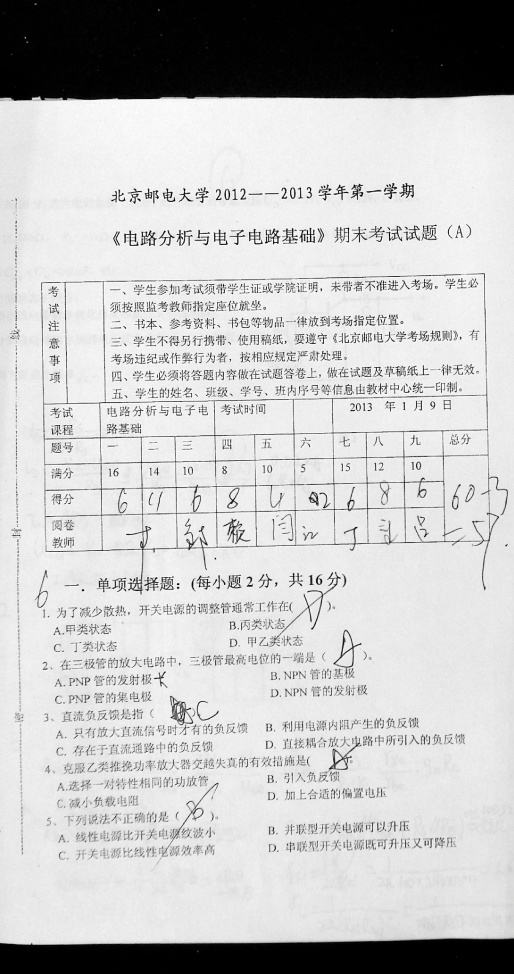 北京邮电大学 2012——2013 学年第一学期
《电路分析与电子电路基础》期末考试试题（A）
考试注意事项
一、学生参加考试须带学生证或学院证明，未带者不准进入考场。学生必
须按照监考教师指定座位就坐。
二、书本、参考资料、书包等物品一律放到考场指定位置。
三、学生不得另行携带、使用稿纸，要遵守《北京邮电大学考场规则》，有
考场违纪或作弊行为者，按相应规定严肃处理。
四、学生必须将答题内容做在试题答卷上，做在试题及草稿纸上一律无效。
五、学生的姓名、班级、学号、班内序号等信息由教材中心统一印制。
考试课程 电路分析与电子电路基础 考试时间 2013 年 1 月 9 日
题号 一 二 三 四 五 六 七 八 九 总分
满分 16 14 10 8 10 5 15 12 10
得分 6 4 6 8 4 2 6 8 6 60-3
阅卷教师 于 邹 赖 闫 江 丁 吕 =57
6
一．单项选择题：(每小题 2 分，共 16 分)
1. 为了减少散热，开关电源的调整管通常工作在( D )。
A.甲类状态 B.丙类状态
C. 丁类状态 D. 甲乙类状态
2、在三极管的放大电路中，三极管最高电位的一端是（ A ）。
A. PNP 管的发射极 B. NPN 管的基极
C. PNP 管的集电极 D. NPN 管的发射极
3、直流负反馈是指（ C
A. 只有放大直流信号时才有的负反馈 B. 利用电源内阻产生的负反馈
C. 存在于直流通路中的负反馈 D. 直接耦合放大电路中所引入的负反馈
4、克服乙类推挽功率放大器交越失真的有效措施是(
A.选择一对特性相同的功放管 B. 引入负反馈
C. 减小负载电阻 D. 加上合适的偏置电压
5、下列说法不正确的是（ B ）。
A. 线性电源比开关电源纹波小 B. 并联型开关电源可以升压
C. 开关电源比线性电源效率高 D. 串联型开关电源既可升压又可降压